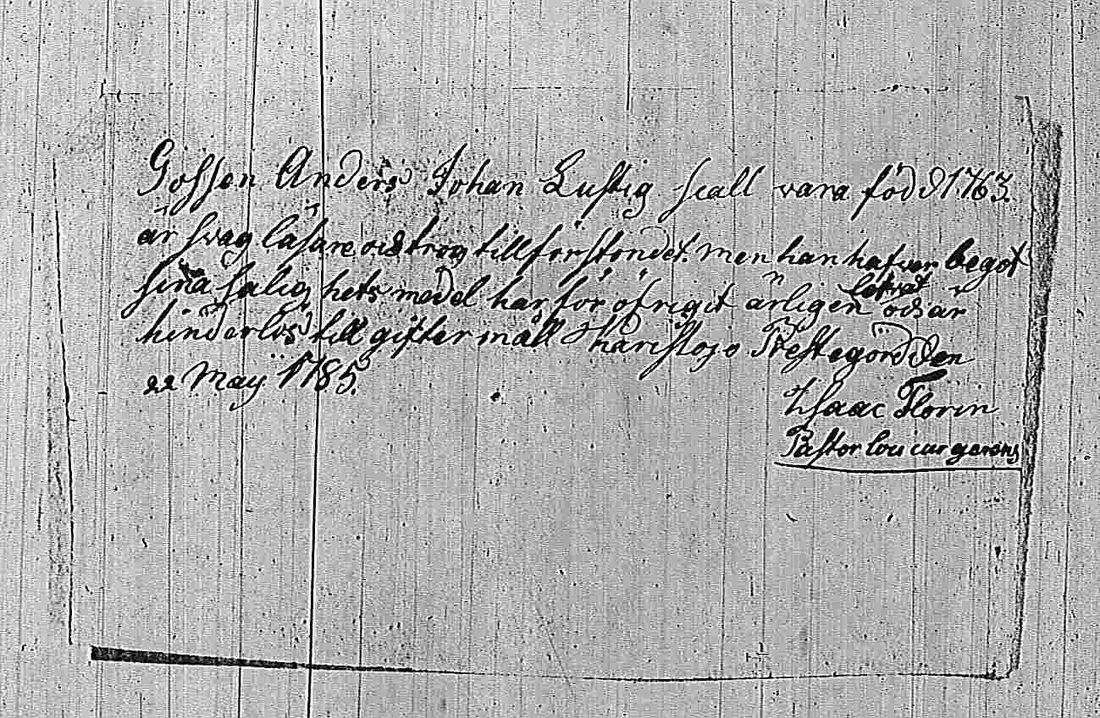 Gossen Anders Johan Lustig scall vara född 1763.
är svag läsare och trög till förstondet. men han hafver begot
sina salig hets medel har för öfrigit ärligen lefvat och är
hinderlös till gifter måll Karislojo Prestegord den
22 Maij 1785.
Isaac Florin
Pastor loci cur gerens